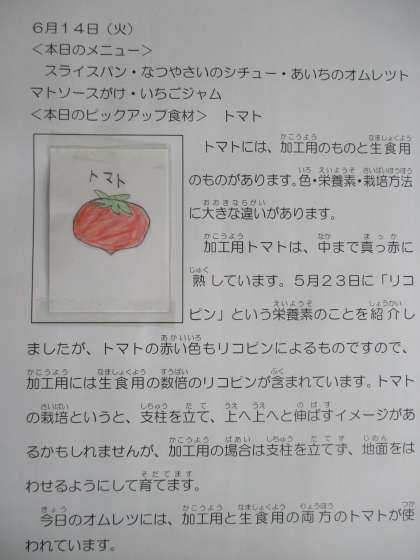 ６月１４日（火）
＜本日のメニュー＞
スライスパン・なつやさいのシチュー・あいちのオムレツト
マトソースがけ・いちごジャム
＜本日のピックアップ食材＞　トマト
トマト
トマトには、加工用のものと生食用
のものがあります。色・栄養素・栽培方法
に大きな違いがあります。
加工用トマトは、中まで真っ赤に
熟しています。５月２３日に「リコ
ピン」という栄養素のことを紹介し
ましたが、トマトの赤い色もリコピンによるものですので、
加工用には生食用の数倍のリコピンが含まれています。トマト
の栽培というと、支柱を立て、上へ上へと伸ばすイメージがあ
るかもしれませんが、加工用の場合は支柱を立てず、地面をは
わせるようにして育てます。
今日のオムレツには、加工用と生食用の両方のトマトが使
われています。